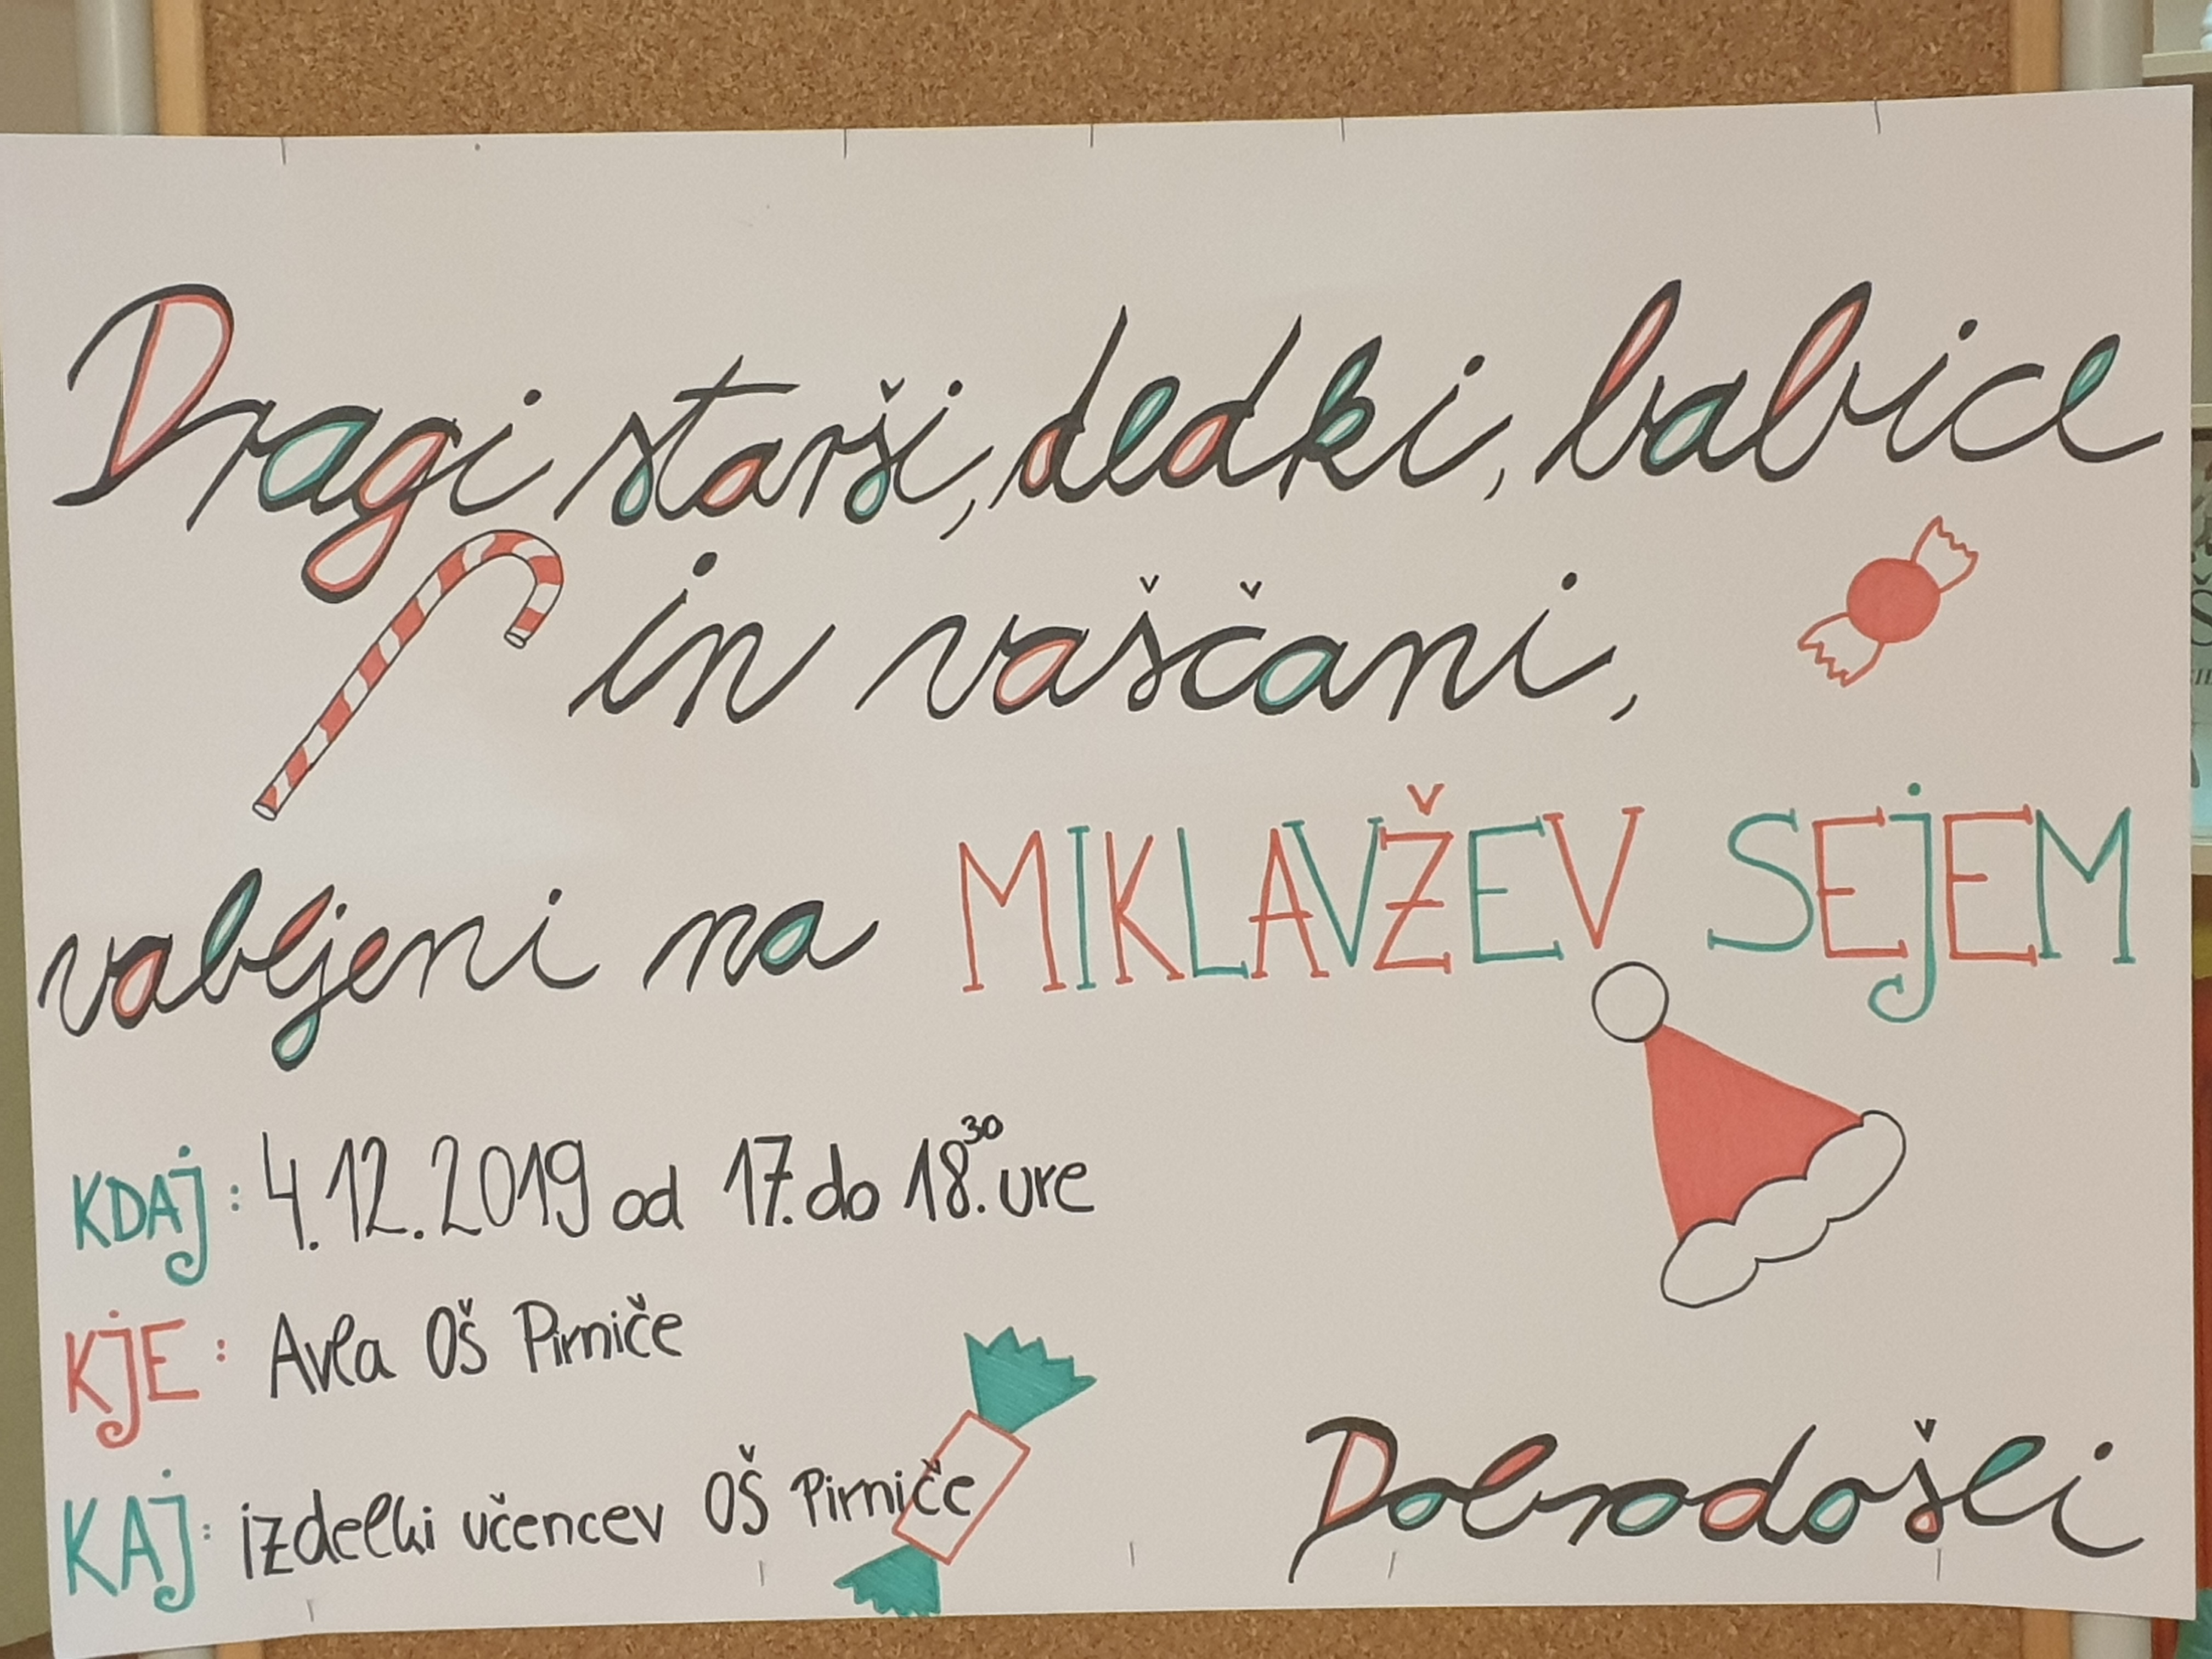 Dragi starši, dedki, babice
in vaščani,
vabljeni na MIKLAVŽEV SEJEM
KDAJ: 4.12.2019 od 17. do 18.30 ure
KJE: Avla OŠ Pirniče
KAJ: izdelki učencev OŠ Pirniče
Dobrodošli